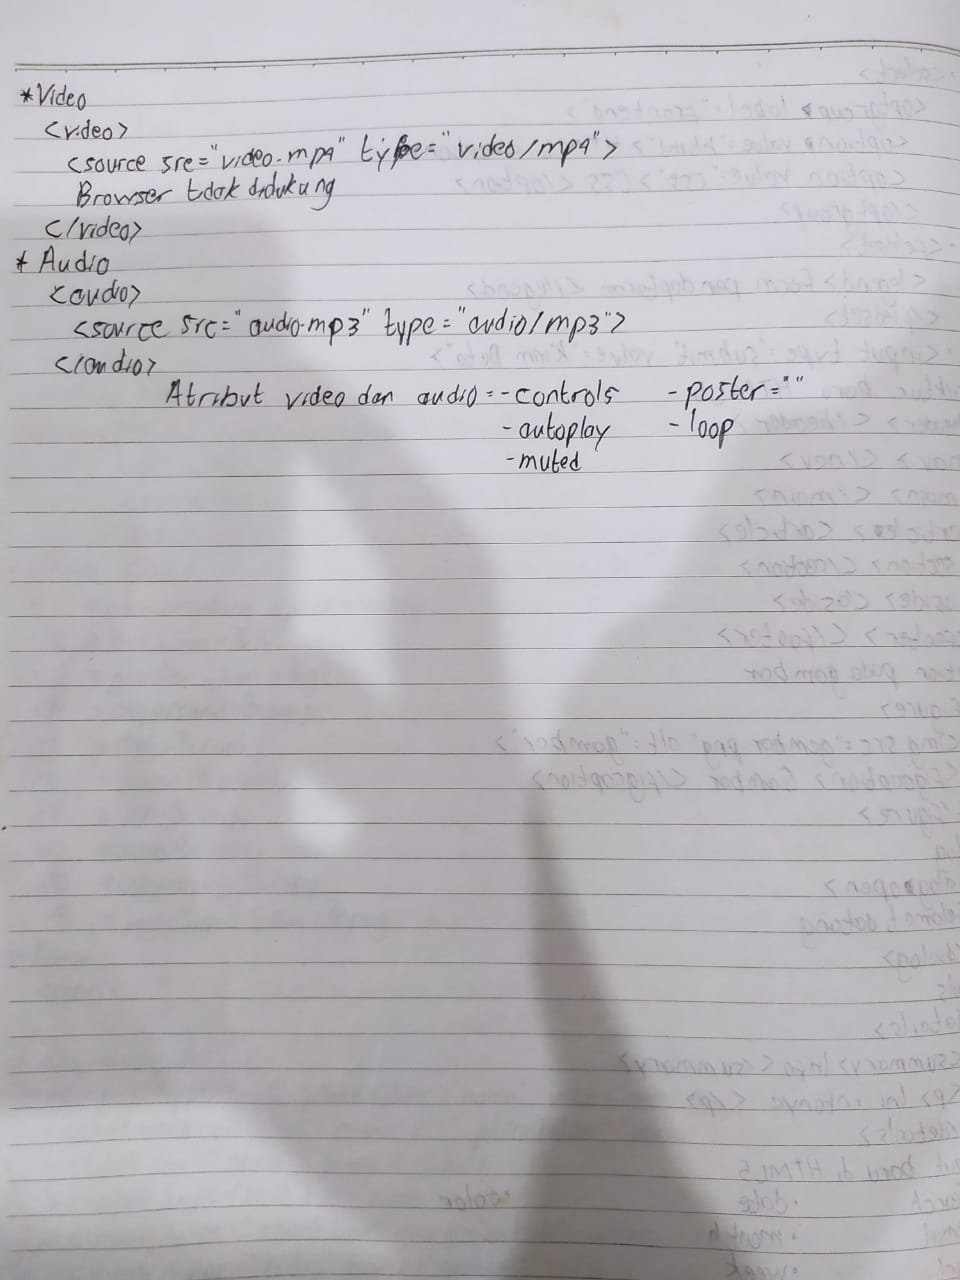 *Video
<video>
<source src="video.mp4" type="video/mp4">
Browser tdak ddukung
</video>
* Audio
<audio>
<source src="audio.mp3" type="audio/mp3">
</audio>
Atribut video dan audio = - controls - poster=""
- autoplay - loop
- muted